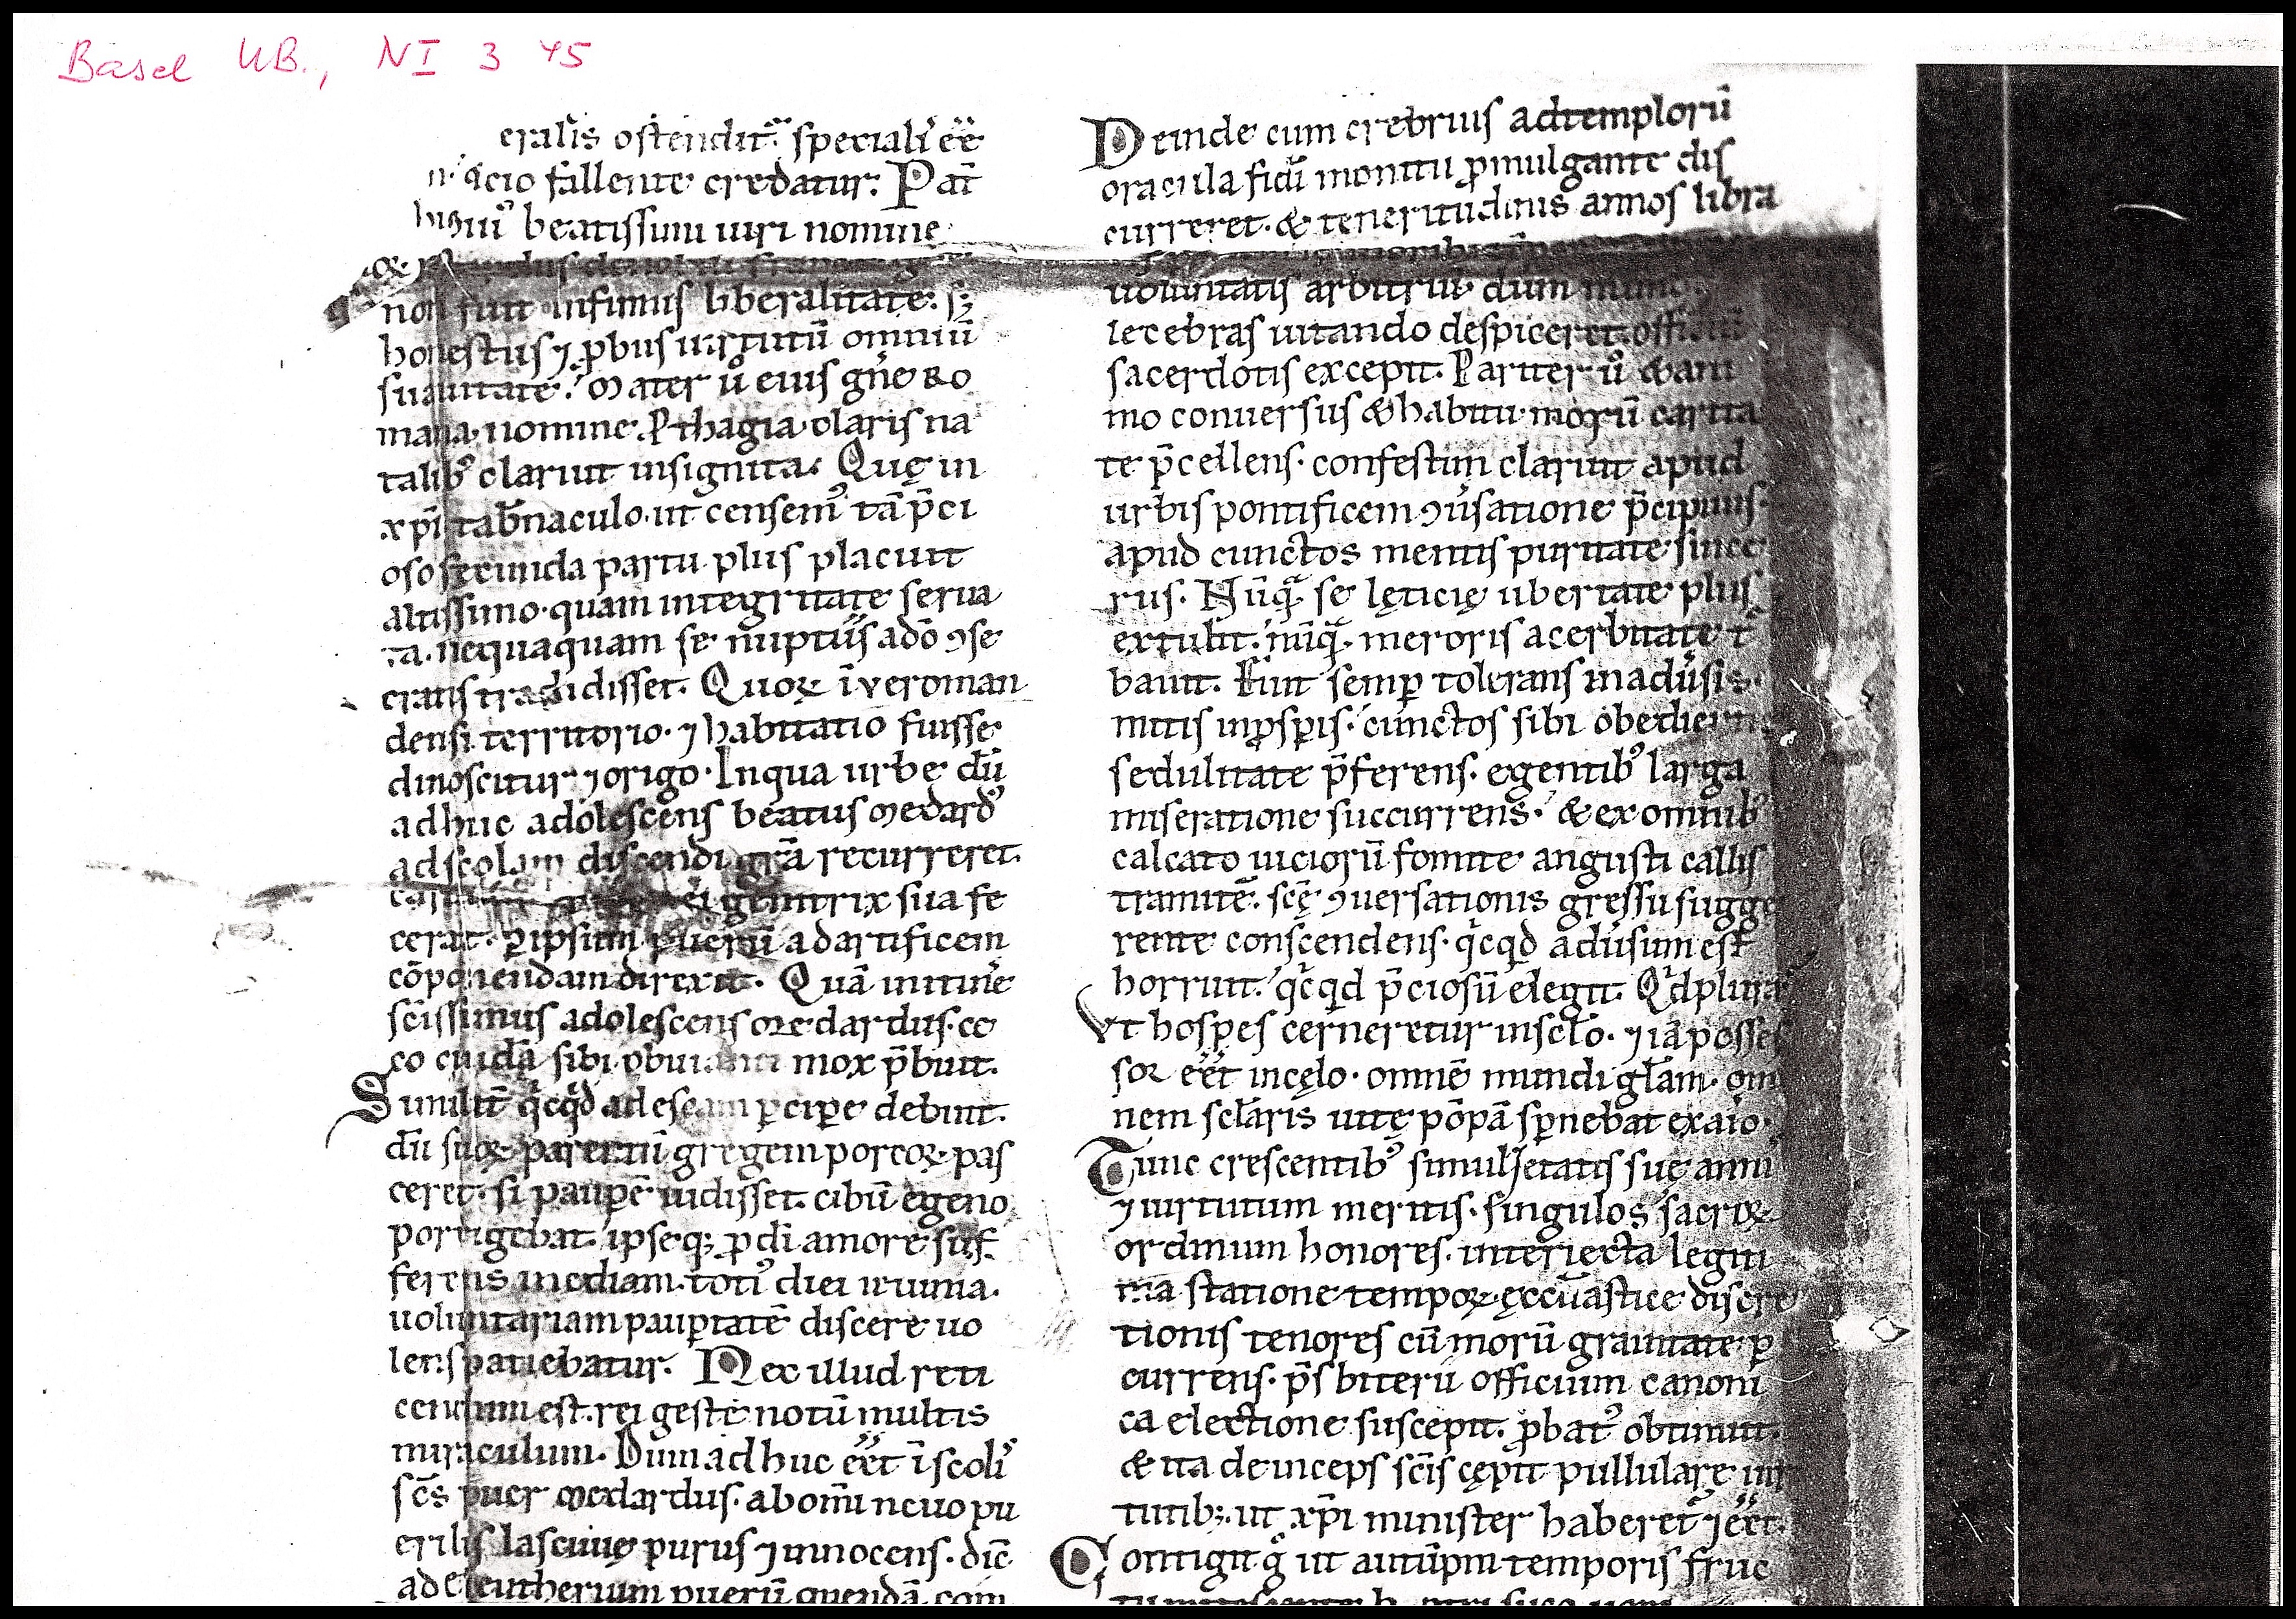 Basel UB., NI 3 45
eralis ostendit᷑ speciali ee̅
acio fallente credatur: Pat̅
beatissimi uiri nomine
non fuit infimus liberalitate: sꝫ
honestus ⁊ ꝓbus uirtutū omniū
suauitate. Mater ů eius gn̄e Ro
mana nomine Prthagia claris na
talibꝰ claruit insignita. Quę in
xp̄i tab̄naculo ut censemꝰ tā p̄ci
oso fecunda partu plus placuit
altissimo quam integritate serua
ta. nequaquam se nuptiis a dō ꝯse
crans tradidisset. Quoꝝ ī veroman
densi territorio ⁊ habitatio fuisse
dinoscitur ⁊ origo. In qua urbe dū
adhuc adolescens beatus Medardꝰ
ad scolam discendi grā recurreret.
ei genitrix sua fe
cerat. ꝑ ipsum puerū ad artificem
cōponendam direxit. Quā in itin̄e
sc̄issimus adolescens Medardus ce
co cuidā sibi obuianti mox p̄buit.
Similit̄ qͥcqͥd ad escam ꝑcipe debuit.
dū suoꝝ parentū gregem porcoꝝ pas
ceret. si paupē uidisset. cibū egeno
porrigebat. ipseqꝫ ꝓ di amore suf
ferens inediam. totiꝰ diei ieiunia.
uoluntariam pauꝑtatē discere uo
lens patiebatur. Nec illud reti
cendum est. rei geste notū multis
miraculum. Dum adhuc eēt ī scolis
sc̄s puer Medardus. ab omni neuo pu
erilis lasciuię purus ⁊ innocens. dic̄
ad eleutherium puerū quendā com
Deinde cum crebrius ad templorū
oracula fidi monitu ꝓmulgante dis
curreret. & teneritudinis annos libra
uoluntatis arbitriū dum
lecebras uitando despiceret. officiū
sacerdotis excepit. Pariter ů & ani
mo conuersus & habitu. morū carita
te p̄cellens. confestim claruit apud
urbis pontificem ꝯuersatione p̄cipuus.
apud cunctos mentis puritate since
rus. Nūqᷓ se lęticię ubertate plus
extulit. nūqᷓ meroris acerbitate t̄
bauit. Fuit semꝑ tolerans in aduersis.
mitis in ꝓsꝑis. cunctos sibi obedien
sedulitate p̄ferens. egentibꝰ larga
miseratione succurrens. & ex omnibꝰ
calcato uiciorū fomite angusti callis
tramitē. scę̄ ꝯuersationis gressu sugge
rente conscendens. qͥcqͥd aduersum est
horruit. qͥcqͥd p̄ciosū elegit. Qͥd plura
Vt hospes cerneretur in sc̄lo. ⁊ iā posses
sor eēt in cęlo. omnē mundi gl̄am. om
nem sc̄laris uitę pōpā sꝑnebat ex aīo.
Tunc crescentibꝰ simul ętatis suę anni
⁊ uirtutum meritis. singulos sacroꝝ
ordinum honores. interiecta legiti
ma statione tempoꝝ ęccl̄iastice discre
tionis tenores cū morū grauitate ꝑ
currens. p̄sbiterii officium canoni
ca electione suscepit. ꝓbatꝰ obtinuit.
& ita deinceps sc̄is cępit pullulare uir
tutibꝫ. ut xp̄i minister haberet᷑ ⁊ eēt.
Contigit g̊ ut autūpni temporis fruc